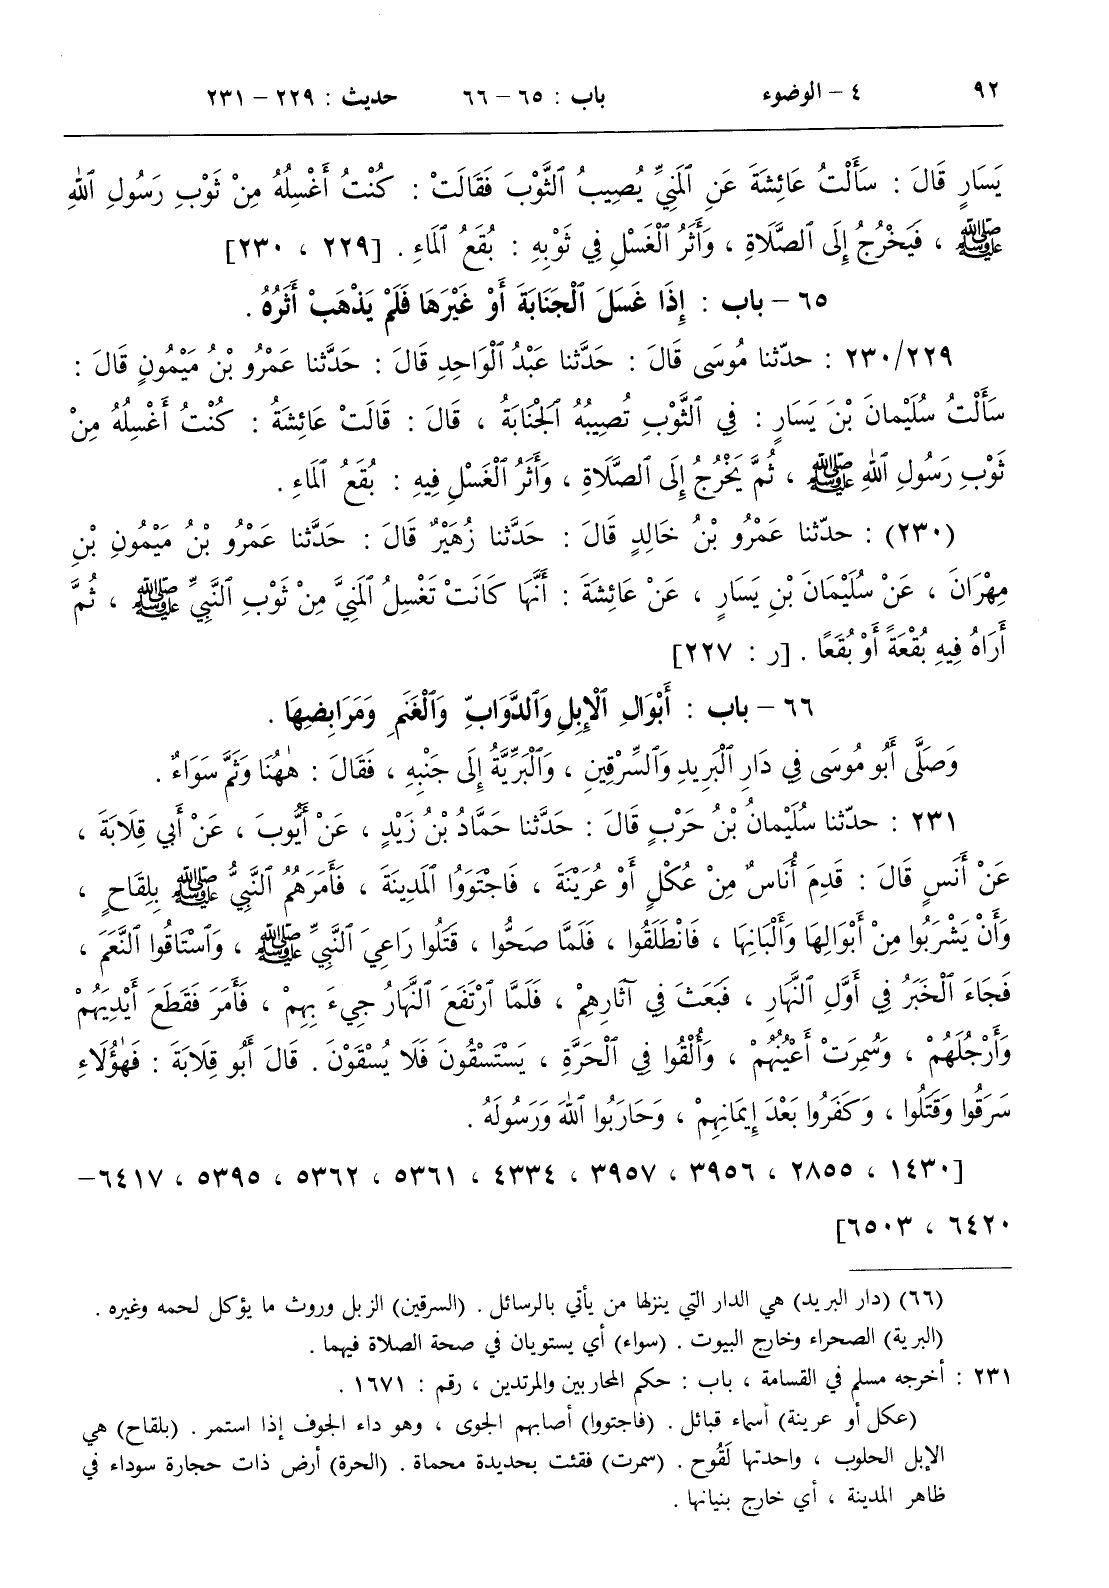 ٩٢ ٤ – الوضوء باب : ٦٥ – ٦٦ حديث : ٢٢٩ – ٢٣١
يَسَارٍ قَالَ : سَأَلْتُ عَائِشَةَ عَنِ الْمَنِيِّ يُصِيبُ الثَّوْبَ فَقَالَتْ : كُنْتُ أَغْسِلُهُ مِنْ ثَوْبِ رَسُولِ اللهِ
ﷺ ، فَيَخْرُجُ إِلَى الصَّلَاةِ ، وَأَثَرُ الْغَسْلِ فِي ثَوْبِهِ : بُقَعُ الْمَاءِ . [٢٢٩ ، ٢٣٠]
٦٥ – باب : إِذَا غَسَلَ الْجَنَابَةَ أَوْ غَيْرَهَا فَلَمْ يَذْهَبْ أَثَرُهُ .
٢٣٠/٢٢٩ : حدّثنا مُوسَى قَالَ : حَدَّثَنا عَبْدُ الْوَاحِدِ قَالَ : حَدَّثَنا عَمْرُو بْنُ مَيْمُونٍ قَالَ :
سَأَلْتُ سُلَيْمانَ بْنَ يَسَارٍ : فِي الثَّوْبِ تُصِيبُهُ الْجَنَابَةُ ، قَالَ : قَالَتْ عَائِشَةُ : كُنْتُ أَغْسِلُهُ مِنْ
ثَوْبِ رَسُولِ اللهِ ﷺ ، ثُمَّ يَخْرُجُ إِلَى الصَّلَاةِ ، وَأَثَرُ الْغَسْلِ فِيهِ : بُقَعُ الْمَاءِ .
(٢٣٠) : حدّثنا عَمْرُو بْنُ خَالِدٍ قَالَ : حَدَّثَنا زُهَيْرٌ قَالَ : حَدَّثَنا عَمْرُو بْنُ مَيْمُونِ بْنِ
مِهْرَانَ ، عَنْ سُلَيْمَانَ بْنِ يَسَارٍ ، عَنْ عَائِشَةَ : أَنَّهَا كَانَتْ تَغْسِلُ الْمَنِيَّ مِنْ ثَوْبِ النَّبِيِّ ﷺ ، ثُمَّ
أَرَاهُ فِيهِ بُقْعَةً أَوْ بُقَعًا . [ر : ٢٢٧]
٦٦ – باب : أَبْوَالِ الْإِبِلِ وَالدَّوَابِّ وَالْغَنَمِ وَمَرَابِضِهَا .
وَصَلَّى أَبُو مُوسَى فِي دَارِ الْبَرِيدِ وَالسِّرْقِينِ ، وَالْبَرِّيَّةُ إِلَى جَنْبِهِ ، فَقَالَ : هٰهُنَا وَثَمَّ سَوَاءٌ .
٢٣١ : حدّثنا سُلَيْمانُ بْنُ حَرْبٍ قَالَ : حَدَّثَنا حَمَّادُ بْنُ زَيْدٍ ، عَنْ أَيُّوبَ ، عَنْ أَبي قِلَابَةَ ،
عَنْ أَنَسٍ قَالَ : قَدِمَ أُنَاسٌ مِنْ عُكْلٍ أَوْ عُرَيْنَةَ ، فَاجْتَوَوُا الْمَدِينَةَ ، فَأَمَرَهُمُ النَّبِيُّ ﷺ بِلِقَاحٍ ،
وَأَنْ يَشْرَبُوا مِنْ أَبْوَالِهَا وَأَلْبَانِهَا ، فَانْطَلَقُوا ، فَلَمَّا صَحُّوا ، قَتَلُوا رَاعِيَ النَّبِيِّ ﷺ ، وَاسْتَاقُوا النَّعَمَ ،
فَجَاءَ الْخَبَرُ فِي أَوَّلِ النَّهَارِ ، فَبَعَثَ فِي آثَارِهِمْ ، فَلَمَّا ارْتَفَعَ النَّهَارُ جِيءَ بِهِمْ ، فَأَمَرَ فَقَطَعَ أَيْدِيَهُمْ
وَأَرْجُلَهُمْ ، وَسُمِرَتْ أَعْيُنُهُمْ ، وَأُلْقُوا فِي الْحَرَّةِ ، يَسْتَسْقُونَ فَلَا يُسْقَوْنَ . قَالَ أَبُو قِلَابَةَ : فَهٰؤُلَاءِ
سَرَقُوا وَقَتَلُوا ، وَكَفَرُوا بَعْدَ إِيمَانِهِمْ ، وَحَارَبُوا اللهَ وَرَسُولَهُ .
[١٤٣٠ ، ٢٨٥٥ ، ٣٩٥٦ ، ٣٩٥٧ ، ٤٣٣٤ ، ٥٣٦١ ، ٥٣٦٢ ، ٥٣٩٥ ، ٦٤١٧–
٦٤٢٠ ، ٦٥٠٣]
(٦٦) (دار البريد) هي الدار التي ينزلها من يأتي بالرسائل . (السرقين) الزبل وروث ما يؤكل لحمه وغيره .
(البرية) الصحراء وخارج البيوت . (سواء) أي يستويان في صحة الصلاة فيهما .
٢٣١ : أخرجه مسلم في القسامة ، باب : حكم المحاربين والمرتدين ، رقم : ١٦٧١ .
(عكل أو عرينة) أسماء قبائل . (فاجتووا) أصابهم الجوى ، وهو داء الجوف إذا استمر . (بلقاح) هي
الإبل الحلوب ، واحدتها لَقُوح . (سمرت) فقئت بحديدة محماة . (الحرة) أرض ذات حجارة سوداء في
ظاهر المدينة ، أي خارج بنيانها .